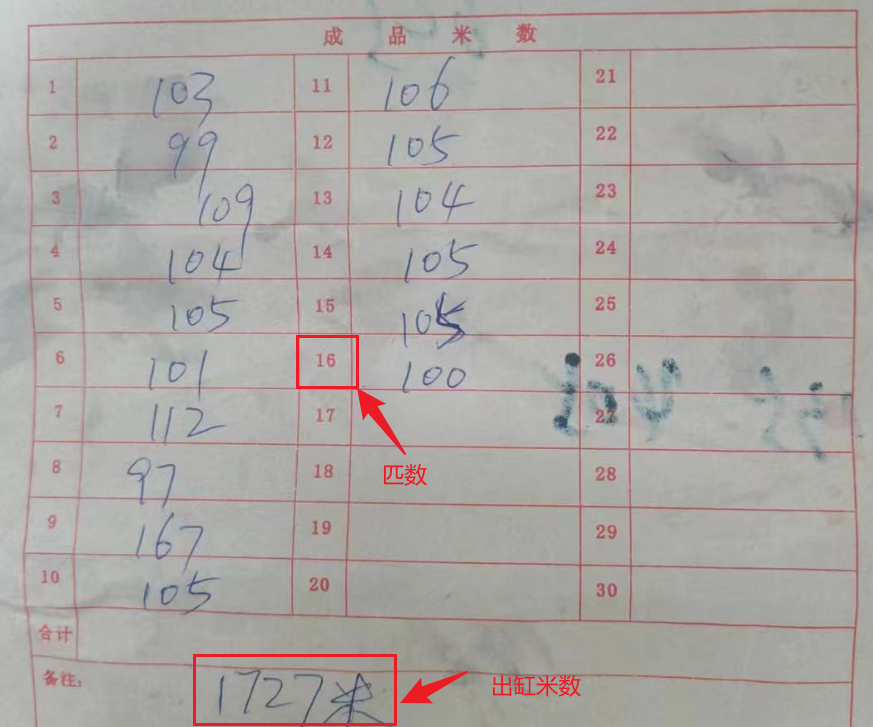 成品米数
1 103 11 106 21
2 99 12 105 22
3 109 13 104 23
4 104 14 105 24
5 105 15 105 25
6 101 16 100 26
7 112 17 27
8 97 18 28
匹数
9 167 19 29
10 105 20 30
合计
备注: 1727米 出缸米数